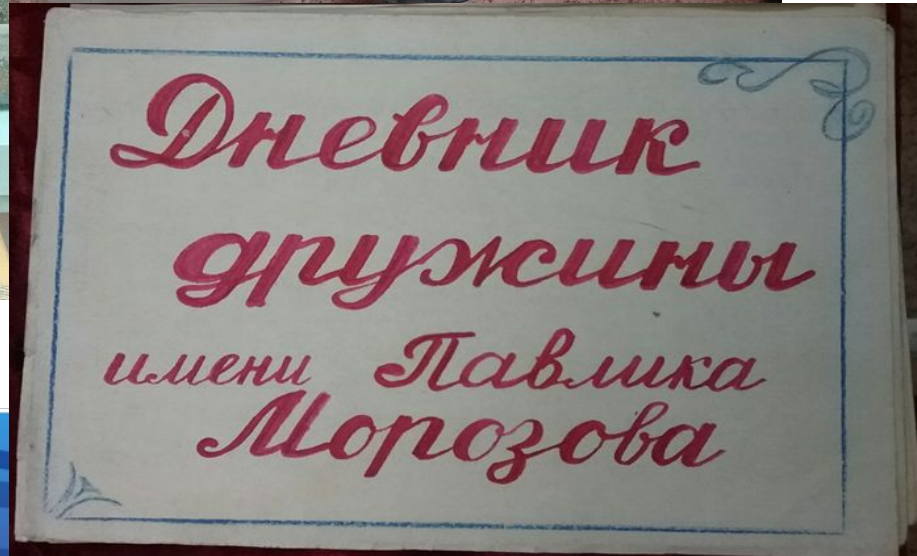 Дневник
дружины
имени Павлика
Морозова